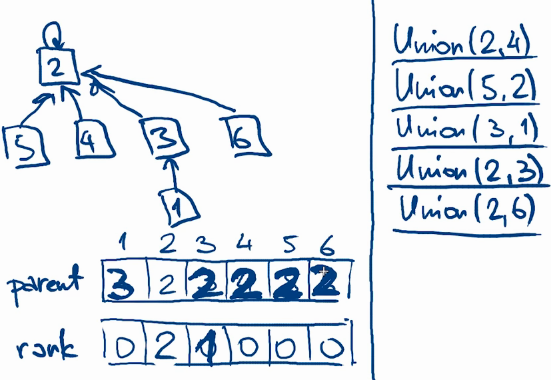 2
5 4 3 6
1
1 2 3 4 5 6
parent 3 2 2 2 2 2
rank 0 2 1 0 0 0
Union(2,4)
Union(5,2)
Union(3,1)
Union(2,3)
Union(2,6)